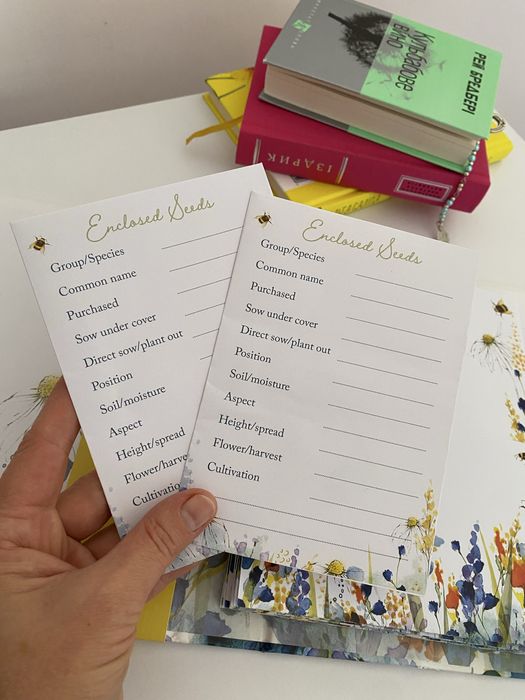 РЕЙ БРЕДБЕРІ
Кульбабове
вино
ІЗДРИК
Enclosed Seeds
Group/Species
Common name
Purchased
Sow under cover
Direct sow/plant out
Position
Soil/moisture
Aspect
Height/spread
Flower/harve
Cultivatio
Enclosed Seeds
Group/Species
Common name
Purchased
Sow under cover
Direct sow/plant out
Position
Soil/moisture
Aspect
Height/spread
Flower/harvest
Cultivation